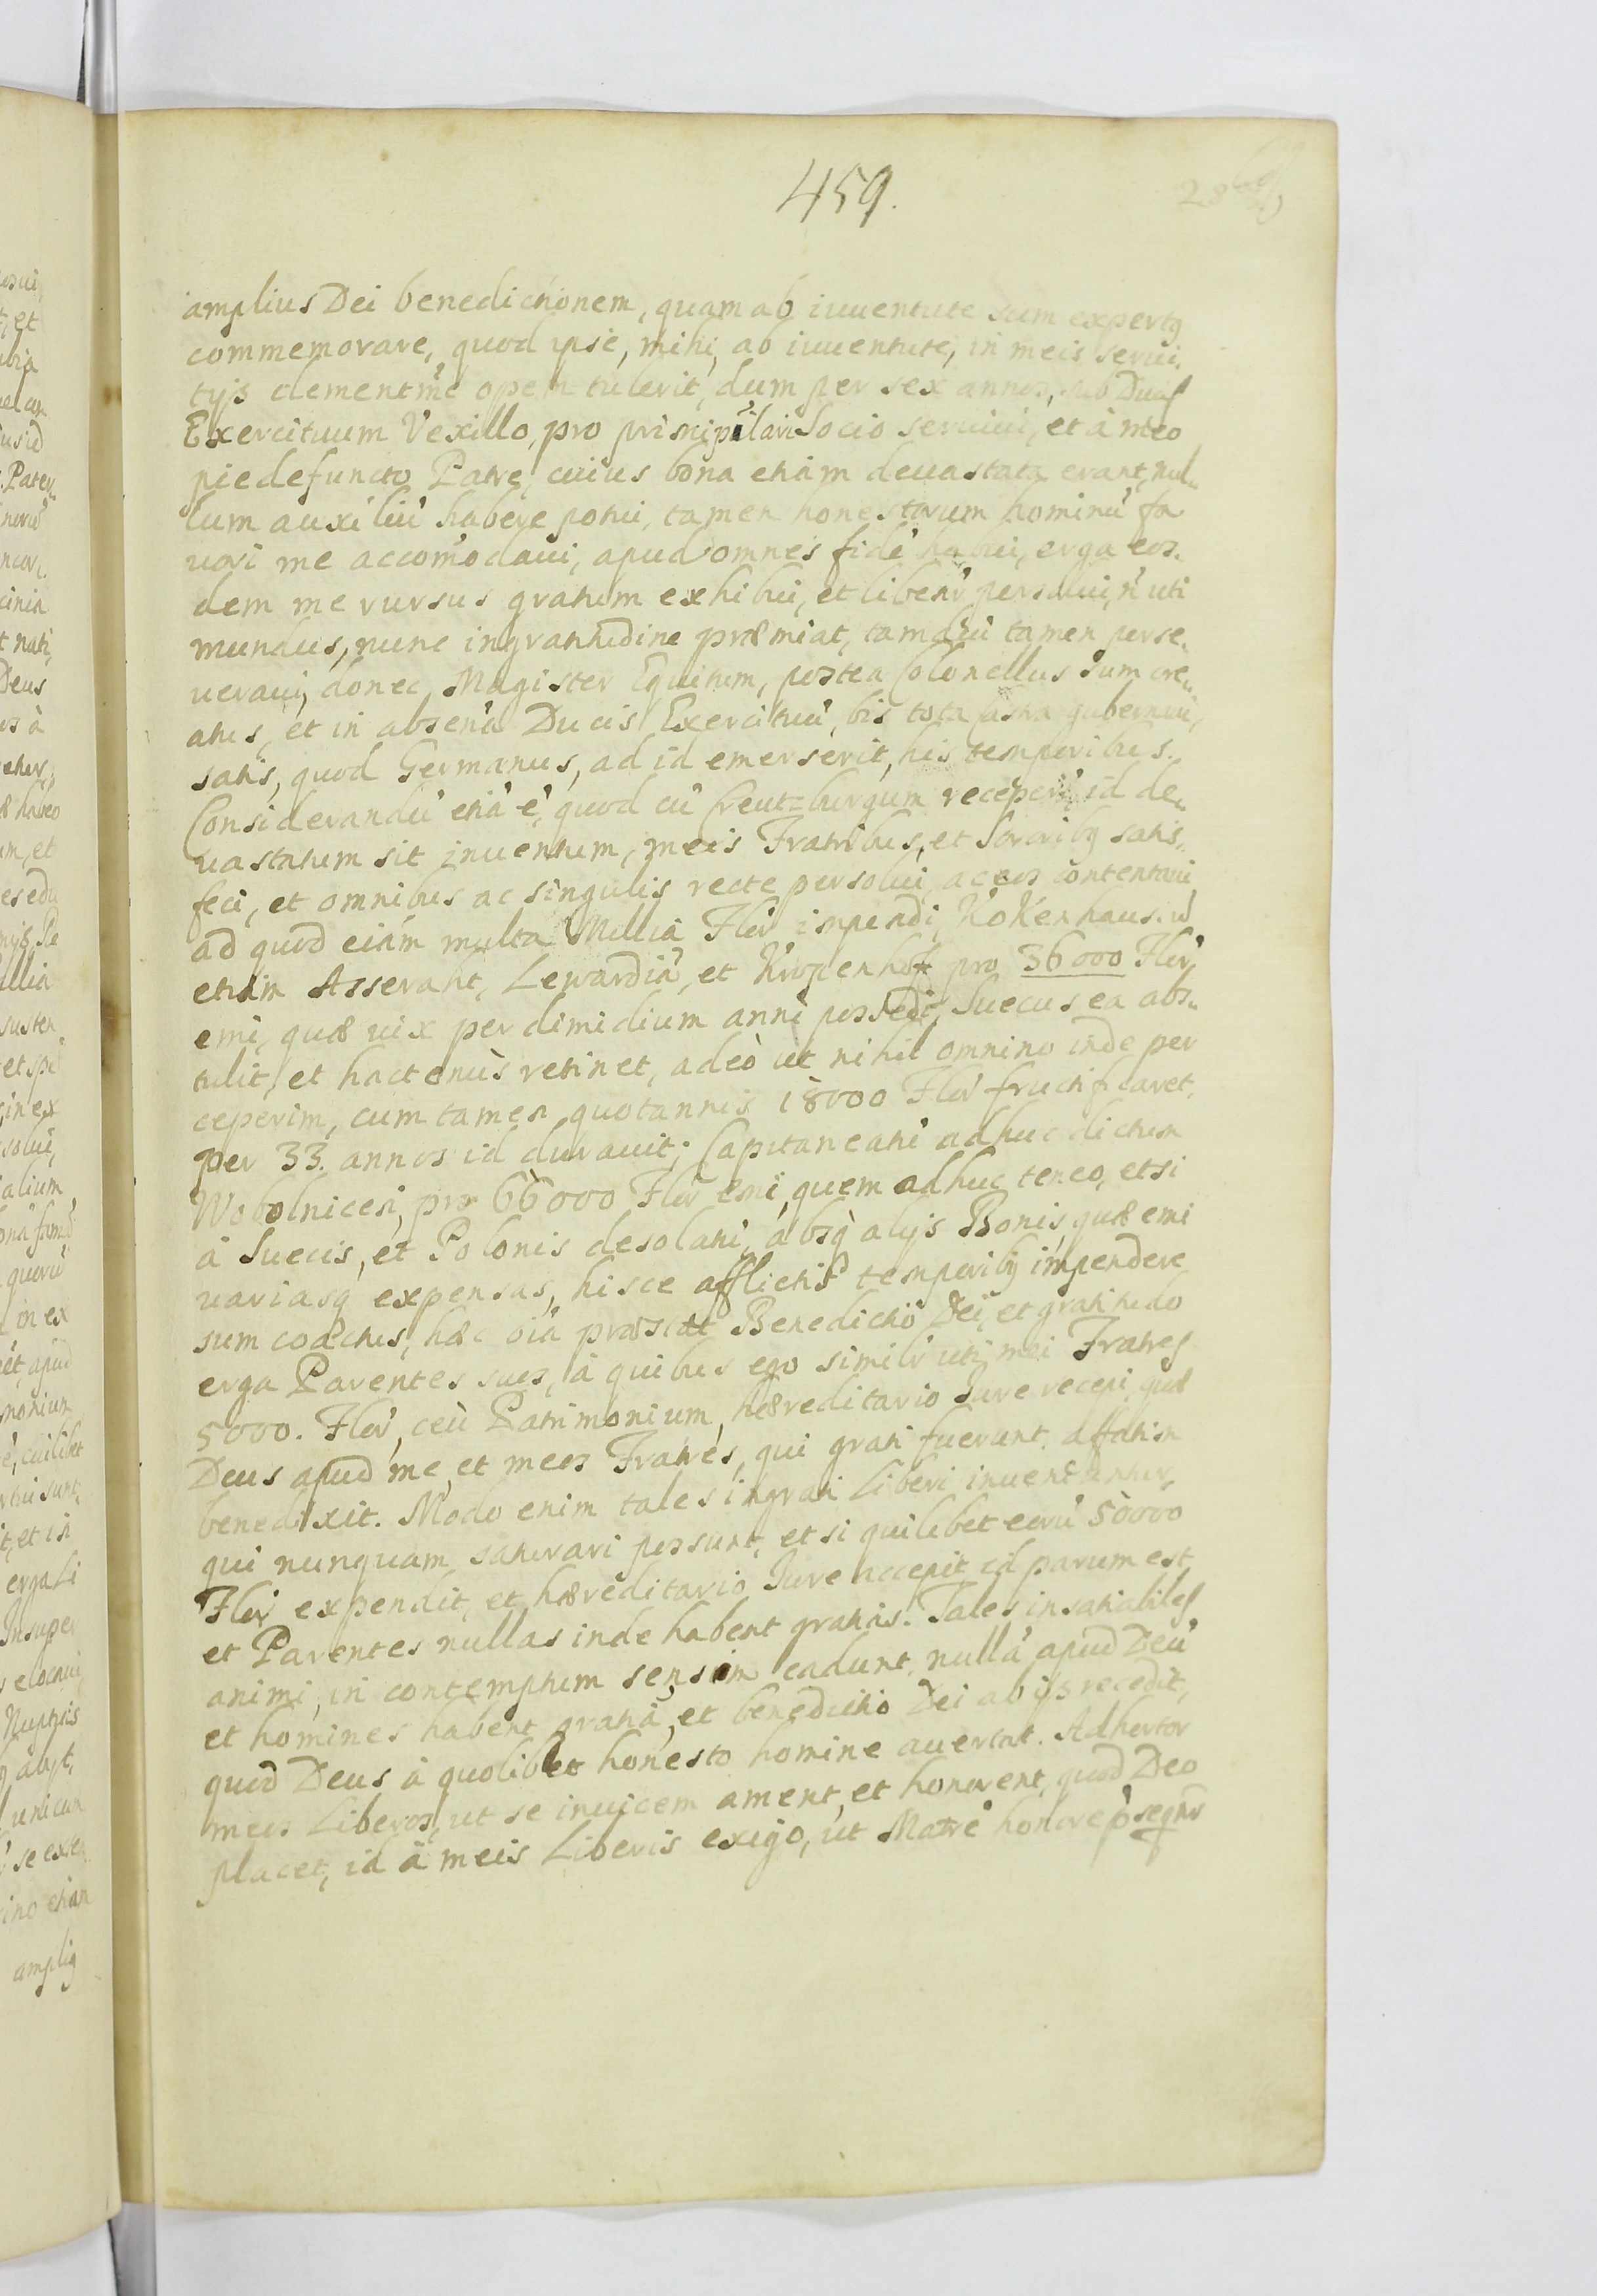 459.
amplius Dei benedictionem, quam ab iuuentute sum expertꝰ
commemorare, quod ipse, mihi, ab iuuentute, in meis serui„
tijs clementmẽ opem tulerit, dum per sex annos, sub Ducis
Exercituum Vexillo, pro prinicipilari Socio seruiui, et à meo
pie defuncto Patre, cuius bona etiam deuastata erant, nul„
lum auxiliũ habere potui, tamen honestorum hominũ fa
uori me accom̃odaui, apud omnes fidẽ habui, erga eos„
dem me rursus gratum exhibui, et libentr̃ persolui, ñ uti
mundus, nunc ingratitudine præmiat, tamdiu tamen perse„
ueraui, donec, Magister Equitum, postea Colonellus sum cre„
atus, et in absentia Ducis Exercituũ, bis tota castra gubernaui,
satis, quod Germanus, ad id emerserit, his temporibus.
Considerandũ etiã ẽ, quod cũ Creutzburgum receperĩ, id de„
uastatum sit inuentum, meis Fratribus, et Sororibꝰ satis„
feci, et omnibus ac singulis recte persolui, ac eos contentaui,
ad quod etiam multa Millia Flor̃ impendi, Kokenhaus. ũ
etiam Asseraht, Lewardiã, et Kropenhof pro 36000 Flor̃
emi, quæ uix per dimidium anni possedi, Suecus ea abs„
tulit, et hactenùs retinet, adeò ut nihil omnino inde per
ceperim, cum tamen quotannis 18000 Flor̃ fructificaret.
per 33. annos id durauit; Capitaneatũ adhuc dictum
Wobolnicesi, pro 66000 Flor̃ emi, quem adhuc teneo, etsi
à Suecis, et Polonis desolatũ, absq̃ alijs Bonis, quæ emi
uariasq̃ expensas, hisce afflictis temporibꝰ impendere
sum coactus, hæc oĩa præstat Benedictio Dei, et gratitudo
erga Parentes suos, à quibus ego similir̃ uti mei Fratres
5000. Flor̃, ceù Patrimonium, hæreditario Jure recepi, quæ
Deus apud me, et meos Fratres, qui grati fuerunt, affatim
benedixit. Modo enim tales ingrati Liberi inueniuntur,
qui nunquam saturari possunt, et si quilibet eorũ 50000
Flor̃ expendit, et hæreditario Jure accepit, id parum est,
et Parentes nullas inde habent gratias. Tales insatiabiles
animi, in contemptum sensim cadunt, nullã apud Deũ
et homines habent gratiã, et benedictio Dei ab ijs recedit,
quod Deus à quolibet honesto homine auertat. Adhortor
meos Liberos, ut se inuicem ament, et honorent, quod Deo
placet, id à meis Liberis exigo, ut Matrẽ honore ꝓseqnr̃